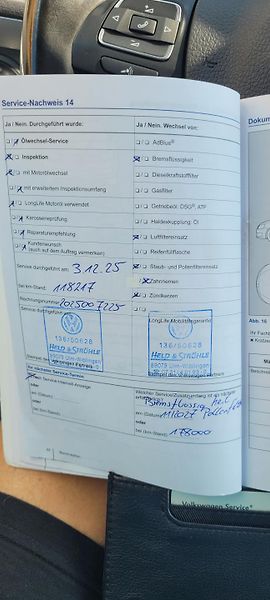 Service-Nachweis 14
Ja / Nein. Durchgeführt wurde:
Ölwechsel-Service
Inspektion
mit Motorölwechsel
mit erweitertem Inspektionsumfang
LongLife Motoröl verwendet
Karosserieprüfung
Reparaturempfehlung
Kundenwunsch
(auch auf dem Auftrag vermerken)
Service durchgeführt am: 3.12.25
bei km-Stand: 118217
Rechnungsnummer:
Service durchgeführt
136/50628
HELD & STRÖHLE
89079 Ulm-Wiblingen
Ja / Nein. Wechsel von:
AdBlue®
Bremsflüssigkeit
Dieselkraftstofffilter
Gasfilter
Getriebeöl: DSG®, ATP
Haldexkupplung: Öl
Luftfiltereinsatz
Reifenfüllflasche
Staub- und Pollenfiltereinsatz
Zahnriemen
Zündkerzen
LongLife Mobilitätsgarantie
136/50628
HELD & STRÖHLE
89079 Ulm-Wiblingen
Ihr nächster Service-Termin:
laut Service-Intervall-Anzeige
oder
am (Datum)
oder
bei (km-Stand)
Bremsflüssigkeit
am (Datum)
oder
bei (km-Stand) 178000
Dokum
Abb. 16
Volkswagen Service